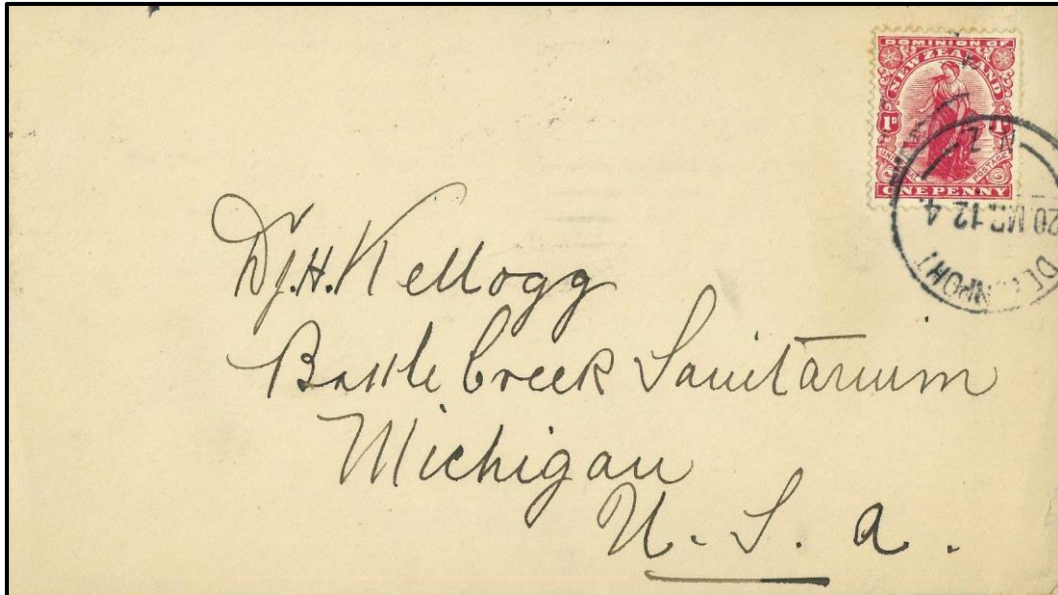 DOMINION OF
NEW ZEALAND
1D 1D
POSTAGE
ONE PENNY
N.Z
20 MR 12 4
Dr J.H. Kellogg
Battle Creek Sanitarium
Michigan
U.S.a.